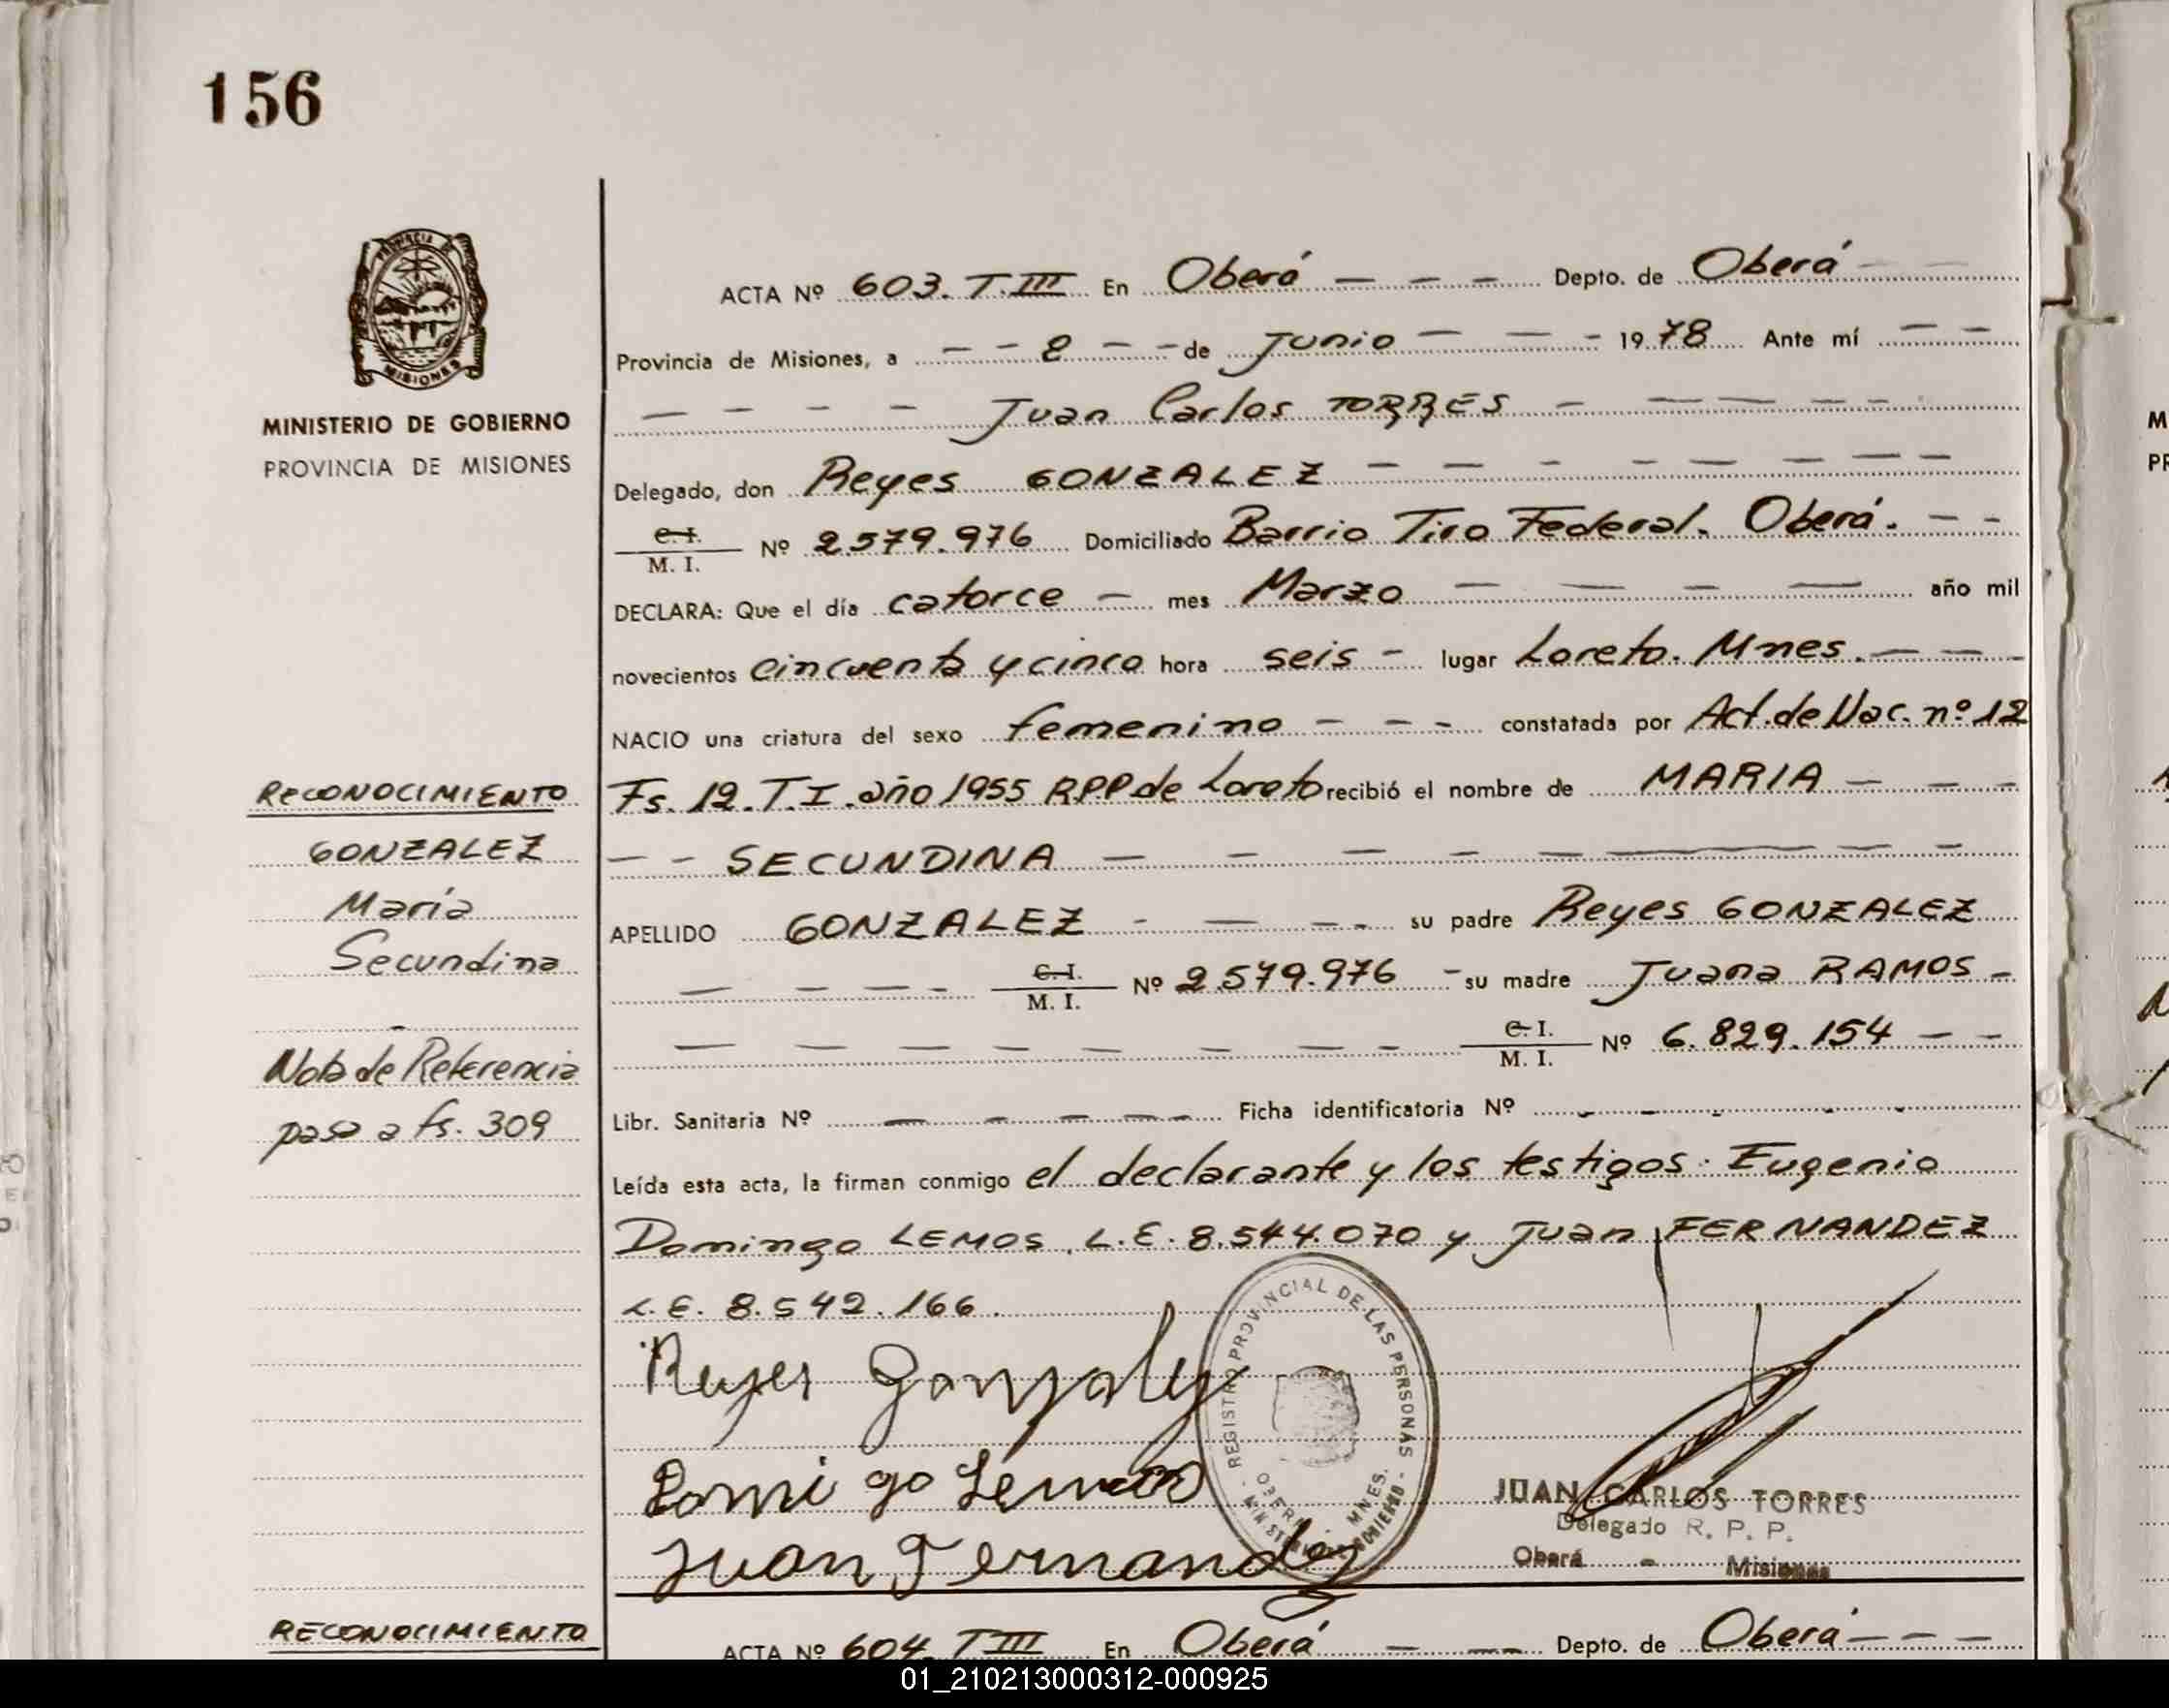 156
PROVINCIA DE
MISIONES
MINISTERIO DE GOBIERNO
PROVINCIA DE MISIONES
RECONOCIMIENTO
GONZALEZ
María
Secundina
Nota de Referencia
pasa a fs. 309
ACTA Nº 603. T. III En Oberá — — — Depto. de Oberá — —
Provincia de Misiones, a — — 2 — — de Junio — — — 1978 Ante mí — —
— — — — Juan Carlos TORRES — — — — —
Delegado, don Reyes GONZALEZ — — — — — — — —
C.I.
M. I. Nº 2.579.976 Domiciliado Barrio Tiro Federal. Oberá. — —
DECLARA: Que el día catorce — mes Marzo — — — — año mil
novecientos cincuenta y cinco hora seis — lugar Loreto. Mnes. — — —
NACIO una criatura del sexo femenino — — — constatada por Act. de Nac. nº 12
Fs. 12. T. I. año 1955 RPP de Loreto recibió el nombre de MARIA — — —
— — SECUNDINA — — — — — — — —
APELLIDO GONZALEZ — — — — su padre Reyes GONZALEZ
— — — — C.I.
M. I. Nº 2.579.976 — su madre Juana RAMOS —
— — — — — — — — C.I.
M. I. Nº 6.829.154 — —
Libr. Sanitaria Nº — — — — — Ficha identificatoria Nº - - - - -
Leída esta acta, la firman conmigo el declarante y los testigos: Eugenio
Domingo LEMOS, L.E. 8.544.070 y Juan FERNANDEZ
L.E. 8.542.166.
Reyes Gonzalez
Domigo Lemos
Juan Fernandez
- REGISTRO PROVINCIAL DE LAS PERSONAS -
OBERA MNES.
MINISTERIO DE GOBIERNO
JUAN CARLOS TORRES
Delegado R. P. P.
Oberá - Misiones
RECONOCIMIENTO
ACTA Nº 604. T III En Oberá — — — Depto. de Oberá — — —
01_210213000312-000925